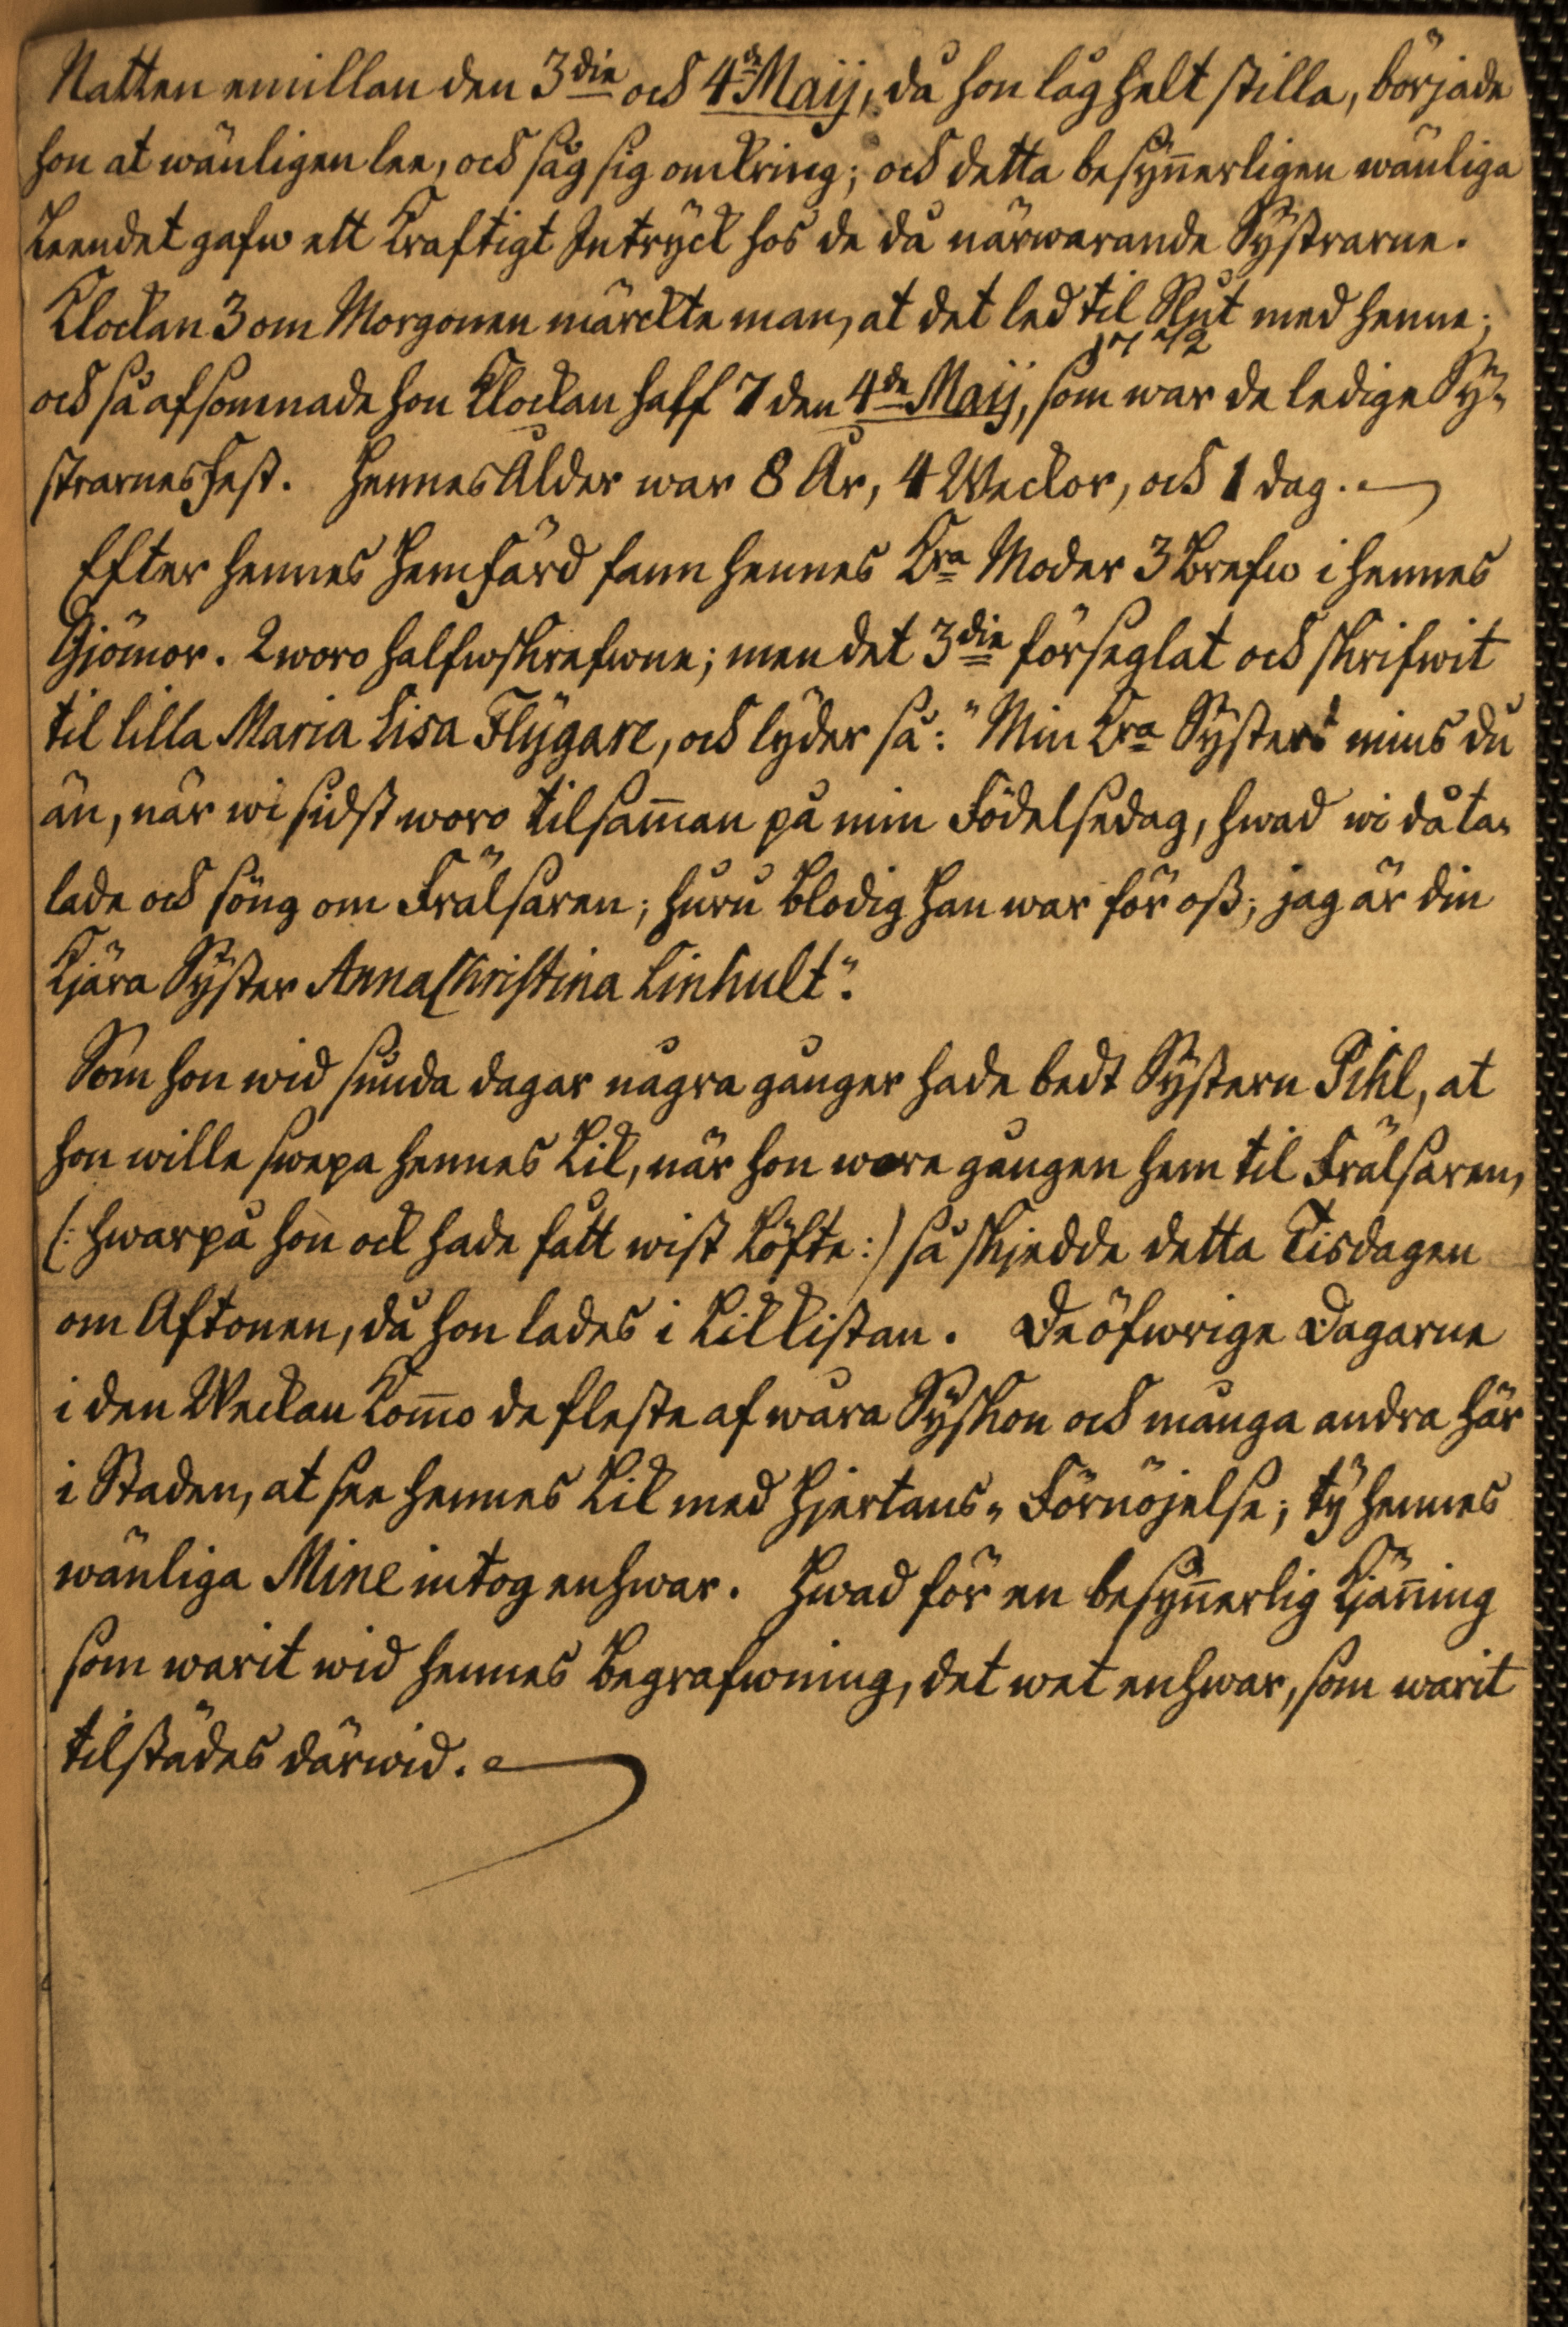 Natten emillan den 3die och 4de Maij, då hon låg helt stilla, började
hon at wänligen lee, och såg sig omkring; och detta besyn̄erligen wänliga
Leendet gafw ett Kraftigt Intryck hos de då närwarande Systrarne.
Klockan 3 om Morgonen märckte man, at det led til Slut med henne;
1772
och så afsomnade hon Klockan half 7 den 4de Maij, som war de ledige Sy⸗
strarnes Fest. Hennes Ålder war 8 År, 4 Weckor, och 1 dag.
Efter hennes Hemfärd fann hennes Kra Moder 3 Brefw i hennes
Gjömor. 2 woro halfwskrefwne; men det 3die förseglat och skrifwit
til lilla Maria Lisa Flygare, och lyder så: "Min Kra Syster! mins du
än, när wi sidst woro tilsam̄an på min Födelsedag, hwad wi då ta⸗
lade och söng om Frälsaren; huru blodig Han war för oß; jag är din
Kjära Syster Anna Christina Linhult".
Som hon wid sunda dagar några gånger hade bedt Systern Pihl, at
hon wille swepa hennes Lik, när hon wore gången hem til Frälsaren,
(: hwarpå hon ock hade fått wist Löfte:) så skjedde detta Tisdagen
om Aftonen, då hon lades i Likkistan. De öfwrige Dagarne
i den Weckan Kom̄o de fleste af wåra Syskon och många andra här
i Staden, at see hennes Lik med Hjertans⸗Förnöjelse; ty hennes
wänliga Mine intog enhwar. Hwad för en besyn̄erlig Kjän̄ing
som warit wid hennes Begrafwning, det wet enhwar, som warit
tilstädes därwid.